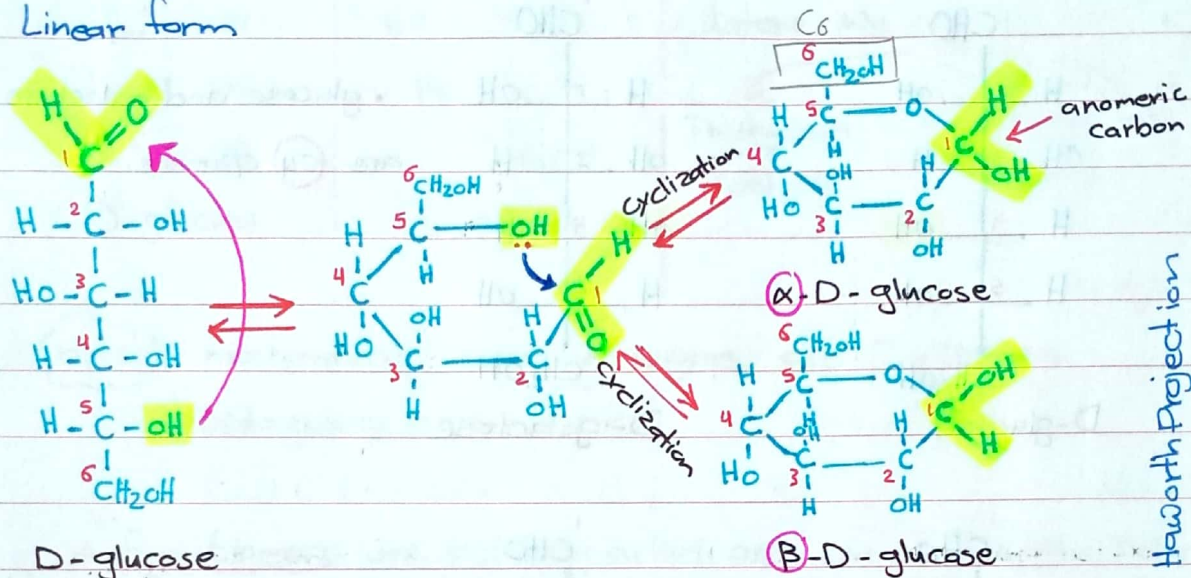 Linear form
H O
1 C
H - 2 C - OH
HO - 3 C - H
H - 4 C - OH
H - 5 C - OH
6 CH2OH
D-glucose
6 CH2OH
5 C OH
H H
4 C
OH H
HO 3 C 2 C
H OH
H
C 1
O
cyclization
cyclization
C6
6 CH2OH
H 5 C O H
4 C H 1 C
OH H OH
HO 3 C 2 C
H OH
anomeric
carbon
α-D-glucose
6 CH2OH
H 5 C O OH
4 C H 1 C
OH H H
HO 3 C 2 C
H OH
β-D-glucose
Haworth projection